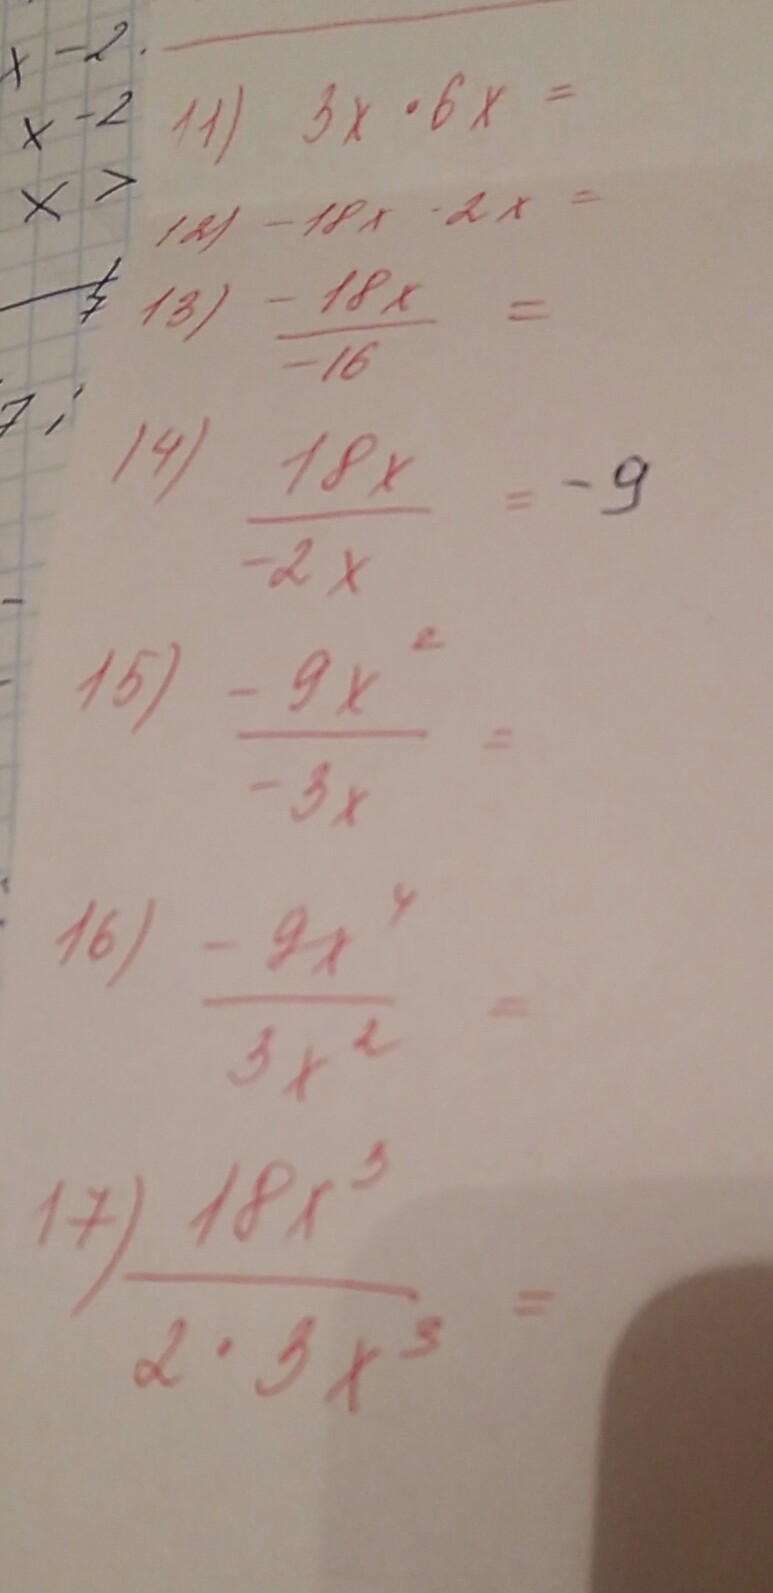 x - 2.
x - 2
x >
7;
11) 3x · 6x =
12) - 18x · 2x =
13) \frac{- 18x}{-16} =
14) \frac{18x}{-2x} = -9
15) \frac{- 9x^2}{-3x} =
16) \frac{- 9x^4}{3x^2} =
17) \frac{18x^3}{2 · 3x^3} =